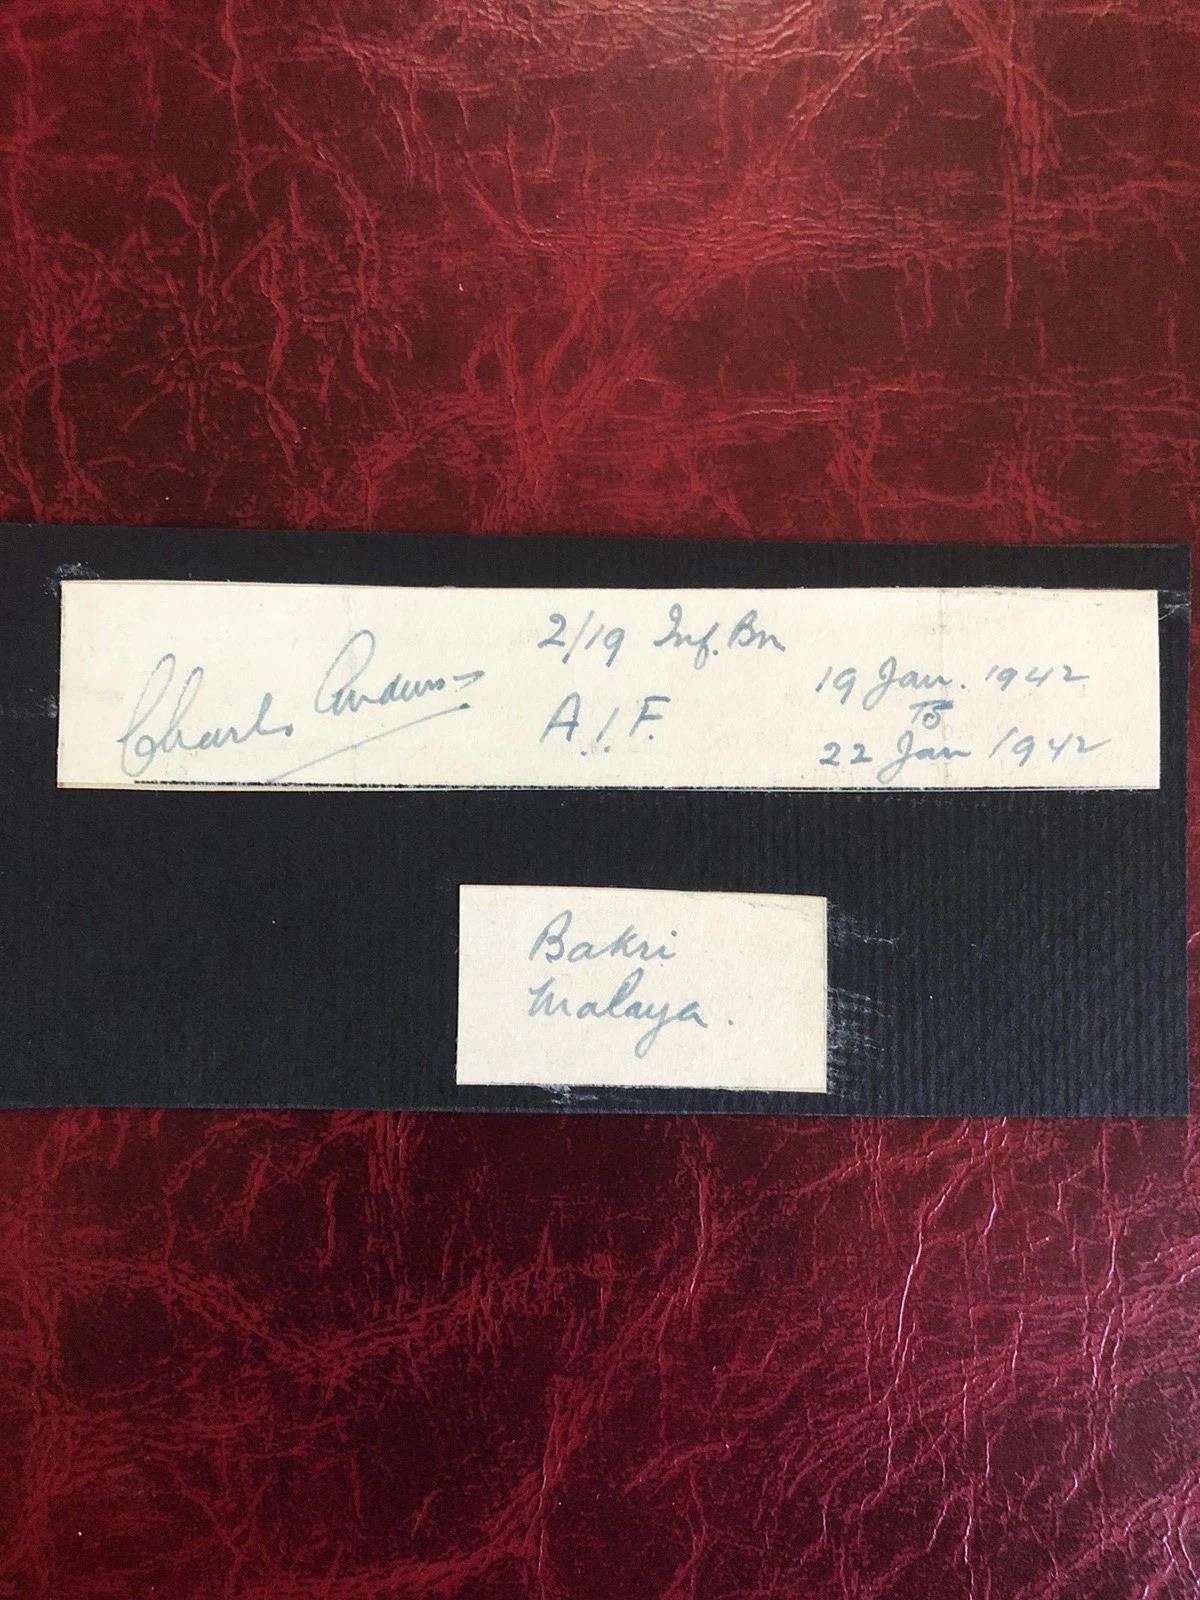 Charles Anderson
2/19 Inf. Bn
A.I.F.
19 Jan. 1942
To
22 Jan 1942
Bakri
Malaya.